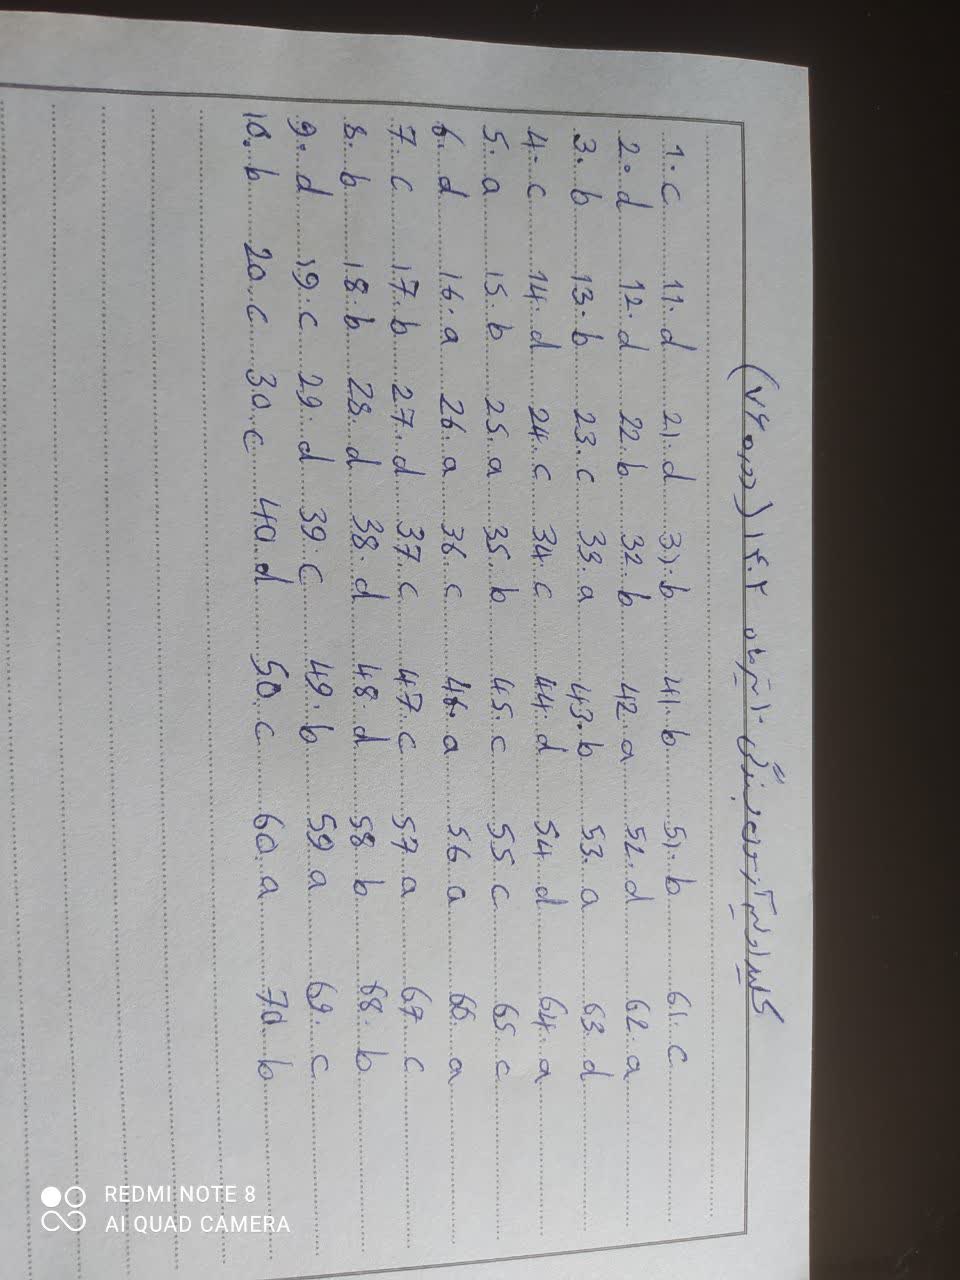 کلید اولیه آزمون زبان بهمن ۱۴۰۲ (دوره ۷۴)
1. c 11. d 21. d 31. b 41. b 51. b 61. c
2. d 12. d 22. b 32. b 42. a 52. d 62. a
3. b 13. b 23. c 33. a 43. b 53. a 63. d
4. c 14. d 24. c 34. c 44. d 54. d 64. a
5. a 15. b 25. a 35. b 45. c 55. c 65. c
6. d 16. a 26. a 36. c 46. a 56. a 66. a
7. c 17. b 27. d 37. c 47. c 57. a 67. c
8. b 18. b 28. d 38. d 48. d 58. b 68. b
9. d 19. c 29. d 39. c 49. b 59. a 69. c
10. b 20. c 30. c 40. d 50. c 60. a 70. b
REDMI NOTE 8
AI QUAD CAMERA